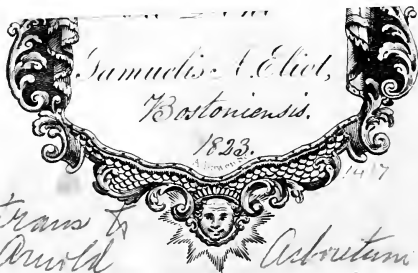 Samuelis A. Eliot,
Bostoniensis.
1823.
1417
Trans to
Arnold Arboretum